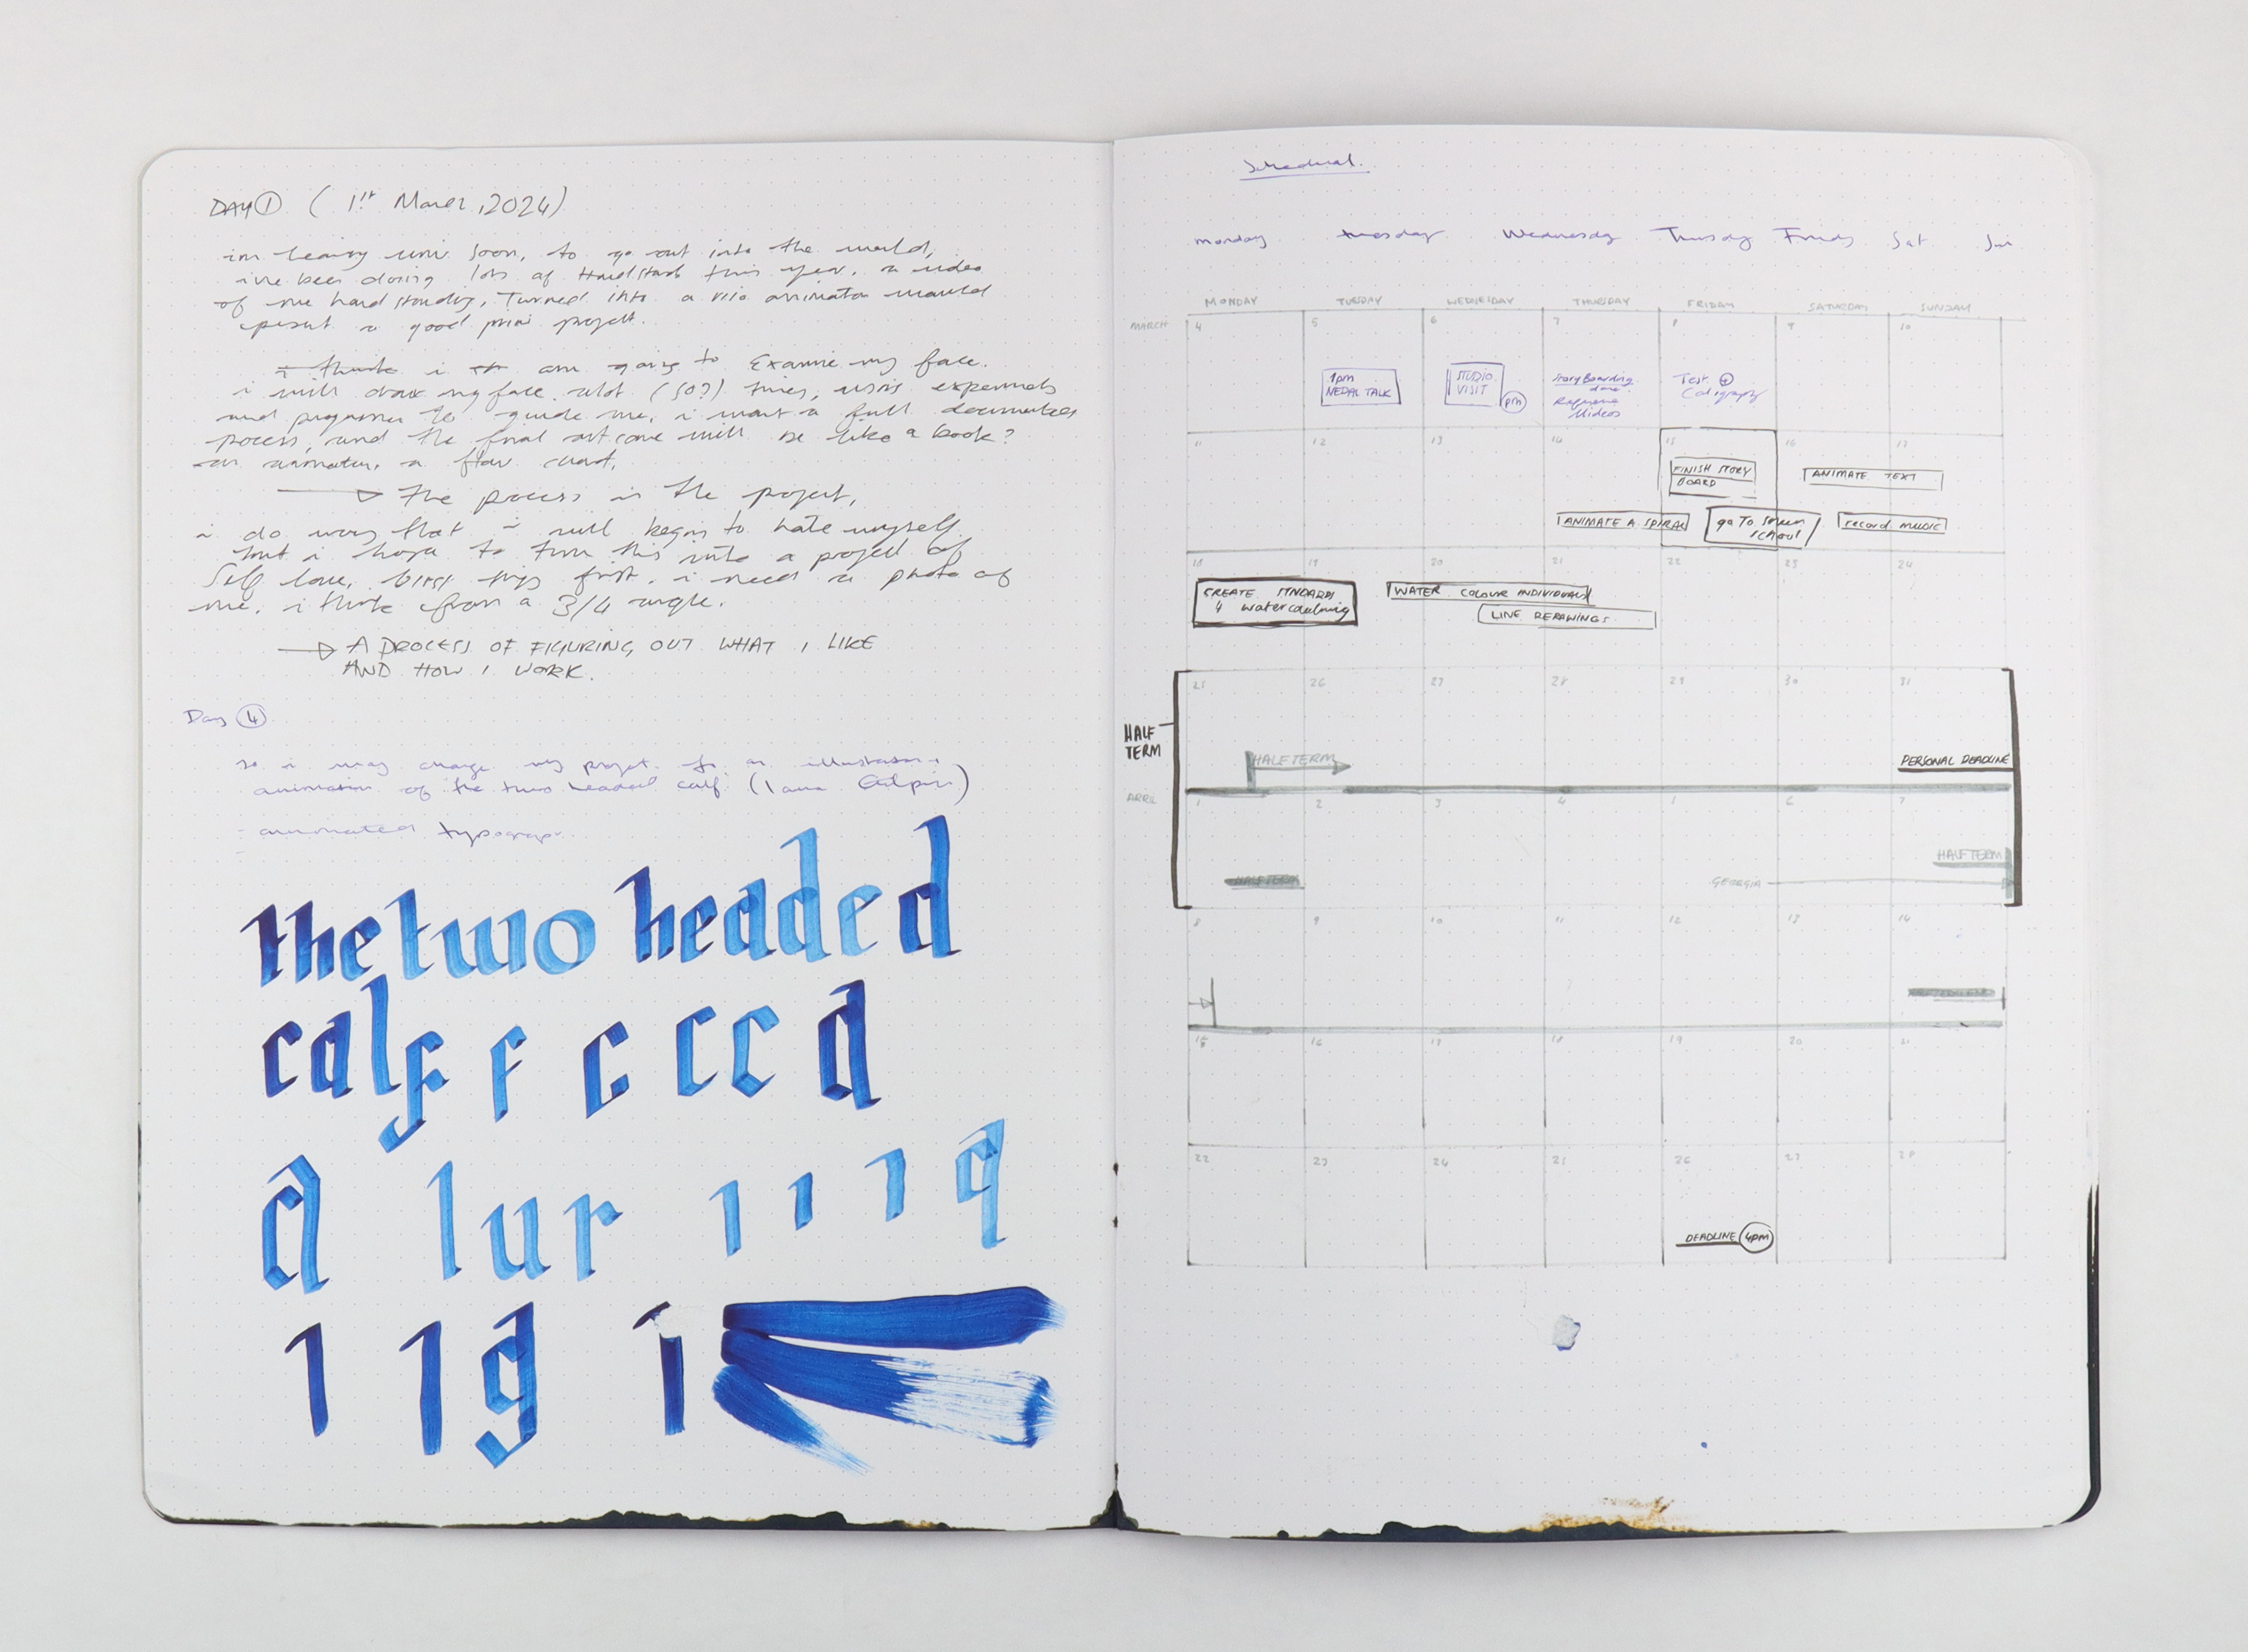 DAY ① ( 1st March, 2024)
im leaving uni soon, to go out into the world,
ive been doing lots of this year. a video
of me hand standing, Turned into a animation would
a good project.
i think i am going to Examine my face.
i will draw my face alot (50?) times, using
and to guide me. i want a full
process, and the final outcome will be like a book?
an animation. a flow chart,
The process is the project,
i do worry that i will begin to hate myself
but i hope to turn this into a project of
Self love. first. i need a photo of
me. i think from a 3/4 angle.
A PROCESS OF FIGURING OUT WHAT I LIKE
AND HOW I WORK.
Day ④
so i may change my projet to an
animation of the two headed calf (
- animated
the two headed
calf f c c c d
a l u r 1 1 1 q
1 1 g 1
monday tuesday Wednesday Thursday Friday Sat Sun
MONDAY TUESDAY WEDNESDAY THURSDAY FRIDAY SATURDAY SUNDAY
MARCH 4 5 6 7 8 9 10
1pm
NEPAL TALK
STUDIO
VISIT
pm
StoryBoarding
done
Test
11 12 13 14 15 16 17
FINISH STORY
BOARD
ANIMATE TEXT
ANIMATE A SPIRAL
go To
school
record music
18 19 20 21 22 23 24
CREATE
WATER COLOUR INDIVIDUALS
LINE
HALF
TERM
25 26 27 28 29 30 31
HALF TERM
PERSONAL DEADLINE
APRIL 1 2 3 4 5 6 7
HALF TERM
HALF TERM
GEORGIA
8 9 10 11 12 13 14
15 16 17 18 19 20 21
22 23 24 25 26 27 28
DEADLINE 4pm